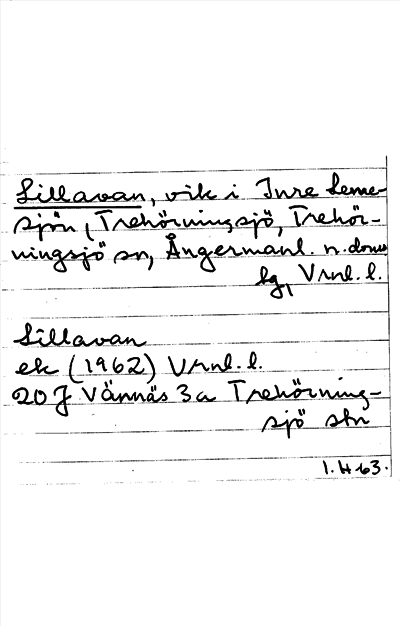 Lillavan, vik i Inre Leme-
sjön, Trehörningsjö, Trehör-
ningsjö sn, Ångermanl. n. doms
lg, Vrnl. l.
Lillavan
ek (1962) Vrnl. l.
20 J Vännäs 3a Trehörning-
sjö stn
1.4-63.